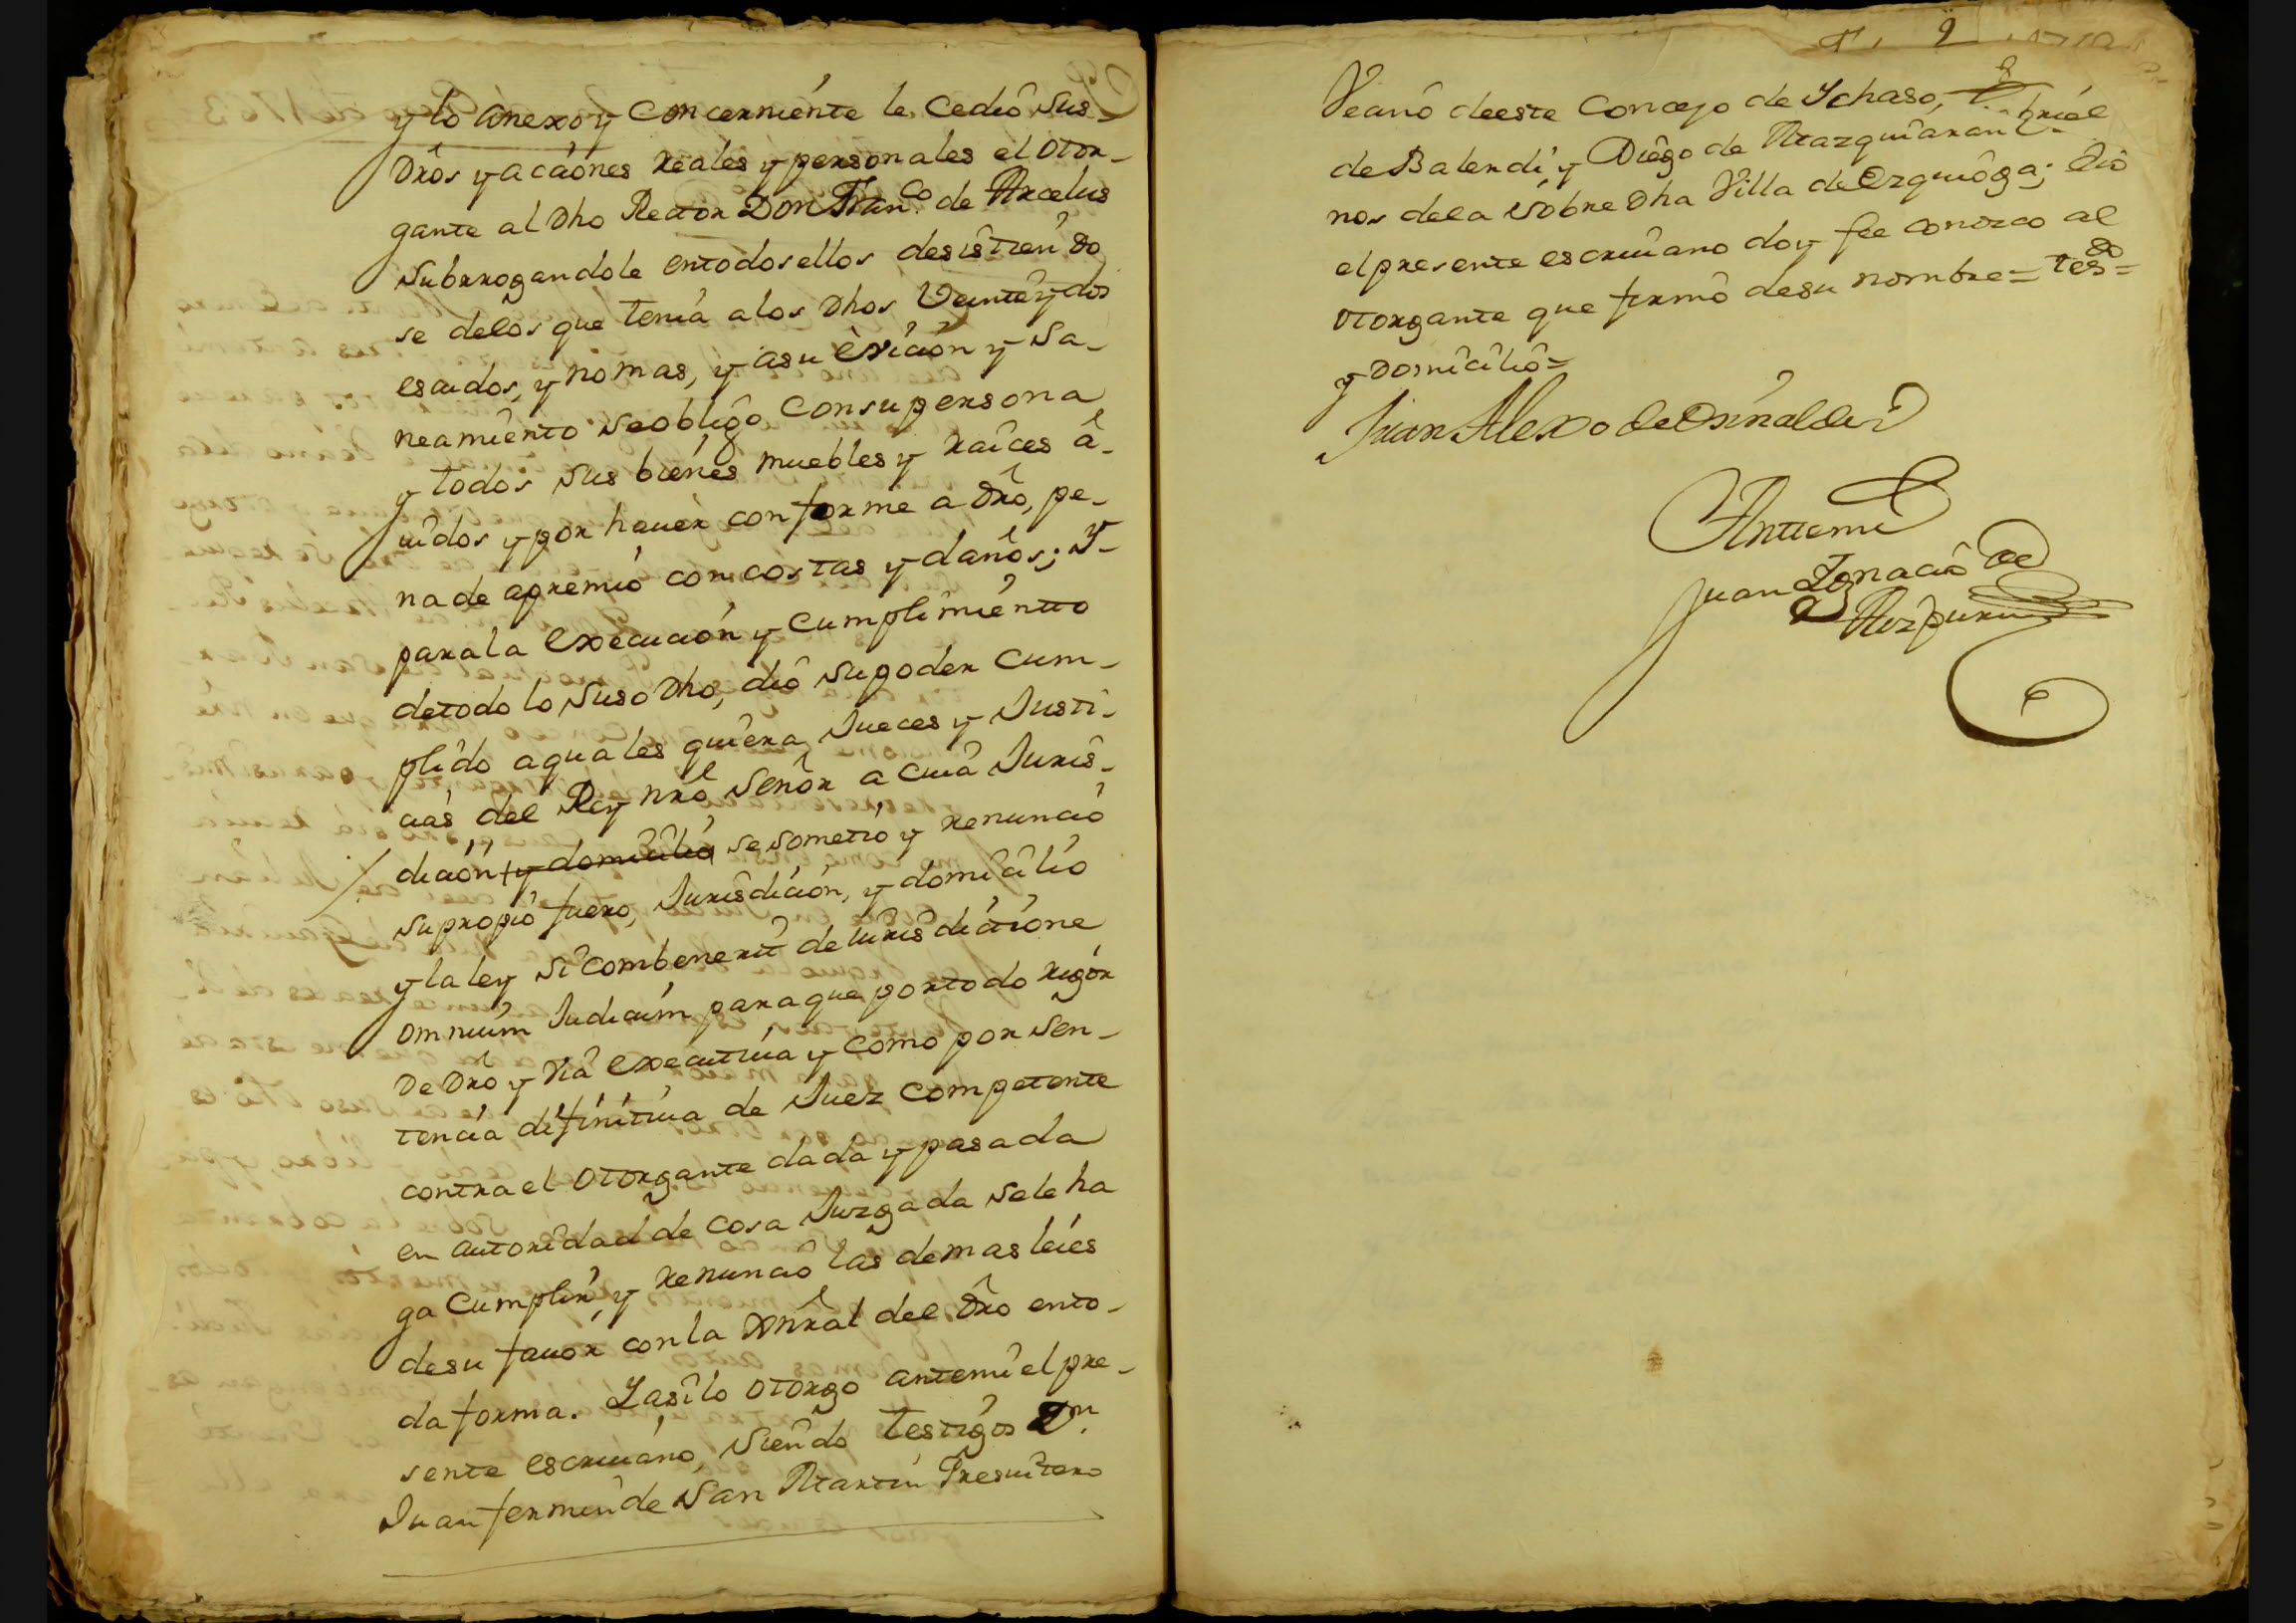 y lo anexo y Concerniente le Cedió sus
dr̃os y acciones reales y personales el otor-
gante al dho Rector Don Fran.co de Arcelus
subrrogandole entodos ellos desistiendo
se delos que tenia alos dhos Veinte y dos
escudos, y nomas, y asu evicion y sa-
neamiento se obligo Consupersona
y todos sus bienes muebles y raices â-
uidos y por hauer conforme a dr̃o, pe-
na de apremio con costas y daños; y-
parala execucion y Cumplimientto
detodo lo suso dho, dió supoder Cum-
plido aquales quiera Jueces y Justi-
cias del Rey nr̃o señor a cuia Juris-
dicion y domicilio se sometió y renunció
supropio fuero, Jurisdicion, y domicilio
y la ley si combenerit de iurisdictione
omnium Judicum paraque portodo rigor
De dr̃o y via executiua y como por sen-
tencia difinitiua de Juez Competente
contra el otorgante dada y pasada
en autoridad de cosa Juzgada sele ha
ga cumplir, y renunció las demas leies
desu fauor conla gnr̃al del dr̃o ento-
da forma. Y asilo otorgo antemi el pre-
sente escriuano, siendo testigos Dn.
Juan fermin de San Martin Presuitero
2
Veino deeste Concejo de Ychaso,
briel
de Balerdi y Diego de
nos dela sobre dha Villa de Ezquioga; Eio
el presente escriuano doy fee conozco al
otorgante que firmó desu nombre= tesdo=
y domicilio=
Juan Alexo de
Antemi
Juan Ignacio de
Aizpuru